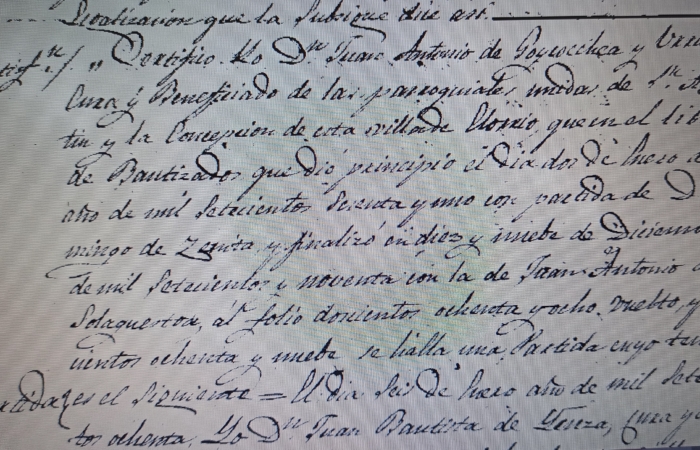 Legalizacion que la Subsigue dice asi.
Certifico Yo Dn. Juan Antonio de Goyecechea y
Cura y Beneficiado de las parroquiales unidas de Sn. A
tin y la Concepcion de esta villa de Elorrio, que en el lib
de Bautizados que dió principio el dia dos de Enero
año de mil setecientos sesenta y uno con partida de D
mingo de Zenita y finalizó en diez y nuebe de Diciem
de mil setecientos y noventa con la de Juan Antonio
Solaguertoa, al folio doscientos ochenta y ocho vuelto, y
cientos ochenta y nuebe se halla una Partida cuyo ten
es el siguiente = El dia seis de Enero año de mil sete
tos ochenta, Yo Dn. Juan Bautista de Yenza, Cura y